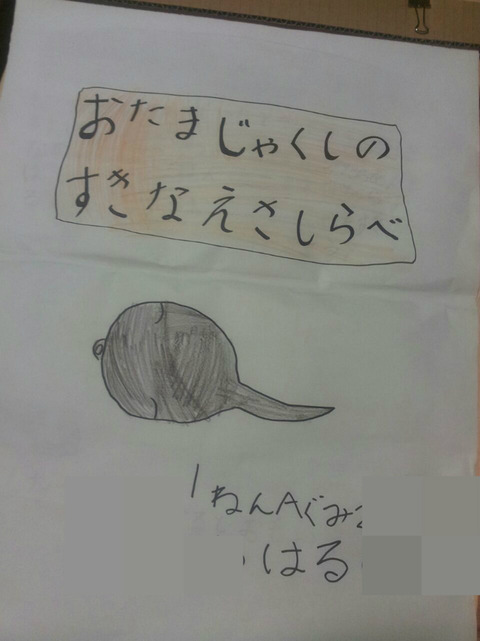 おたまじゃくしの
すきなえさしらべ
1ねんAぐみ
はる